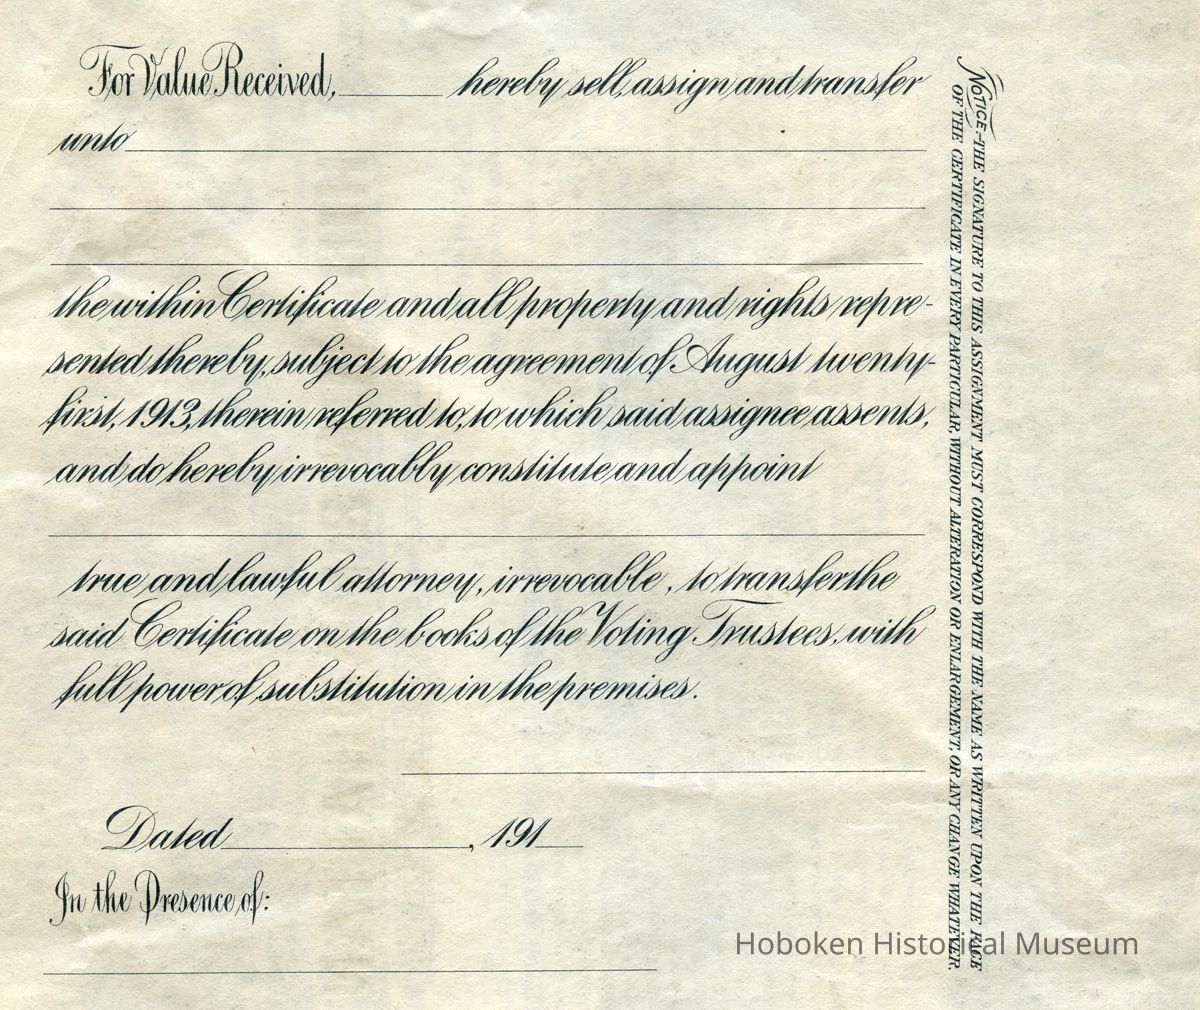 For Value Received, ______ hereby sell, assign and transfer
unto
the within Certificate and all property and rights repre-
sented thereby, subject to the agreement of August twenty-
first, 1913, therein referred to, to which said assignee assents,
and do hereby irrevocably constitute and appoint
true and lawful attorney, irrevocable, to transfer the
said Certificate on the books of the Voting Trustees, with
full power of substitution in the premises.
Dated ______, 191__
In the Presence of:
NOTICE:—THE SIGNATURE TO THIS ASSIGNMENT MUST CORRESPOND WITH THE NAME AS WRITTEN UPON THE FACE
OF THE CERTIFICATE IN EVERY PARTICULAR, WITHOUT ALTERATION OR ENLARGEMENT, OR ANY CHANGE WHATEVER.
Hoboken Historical Museum